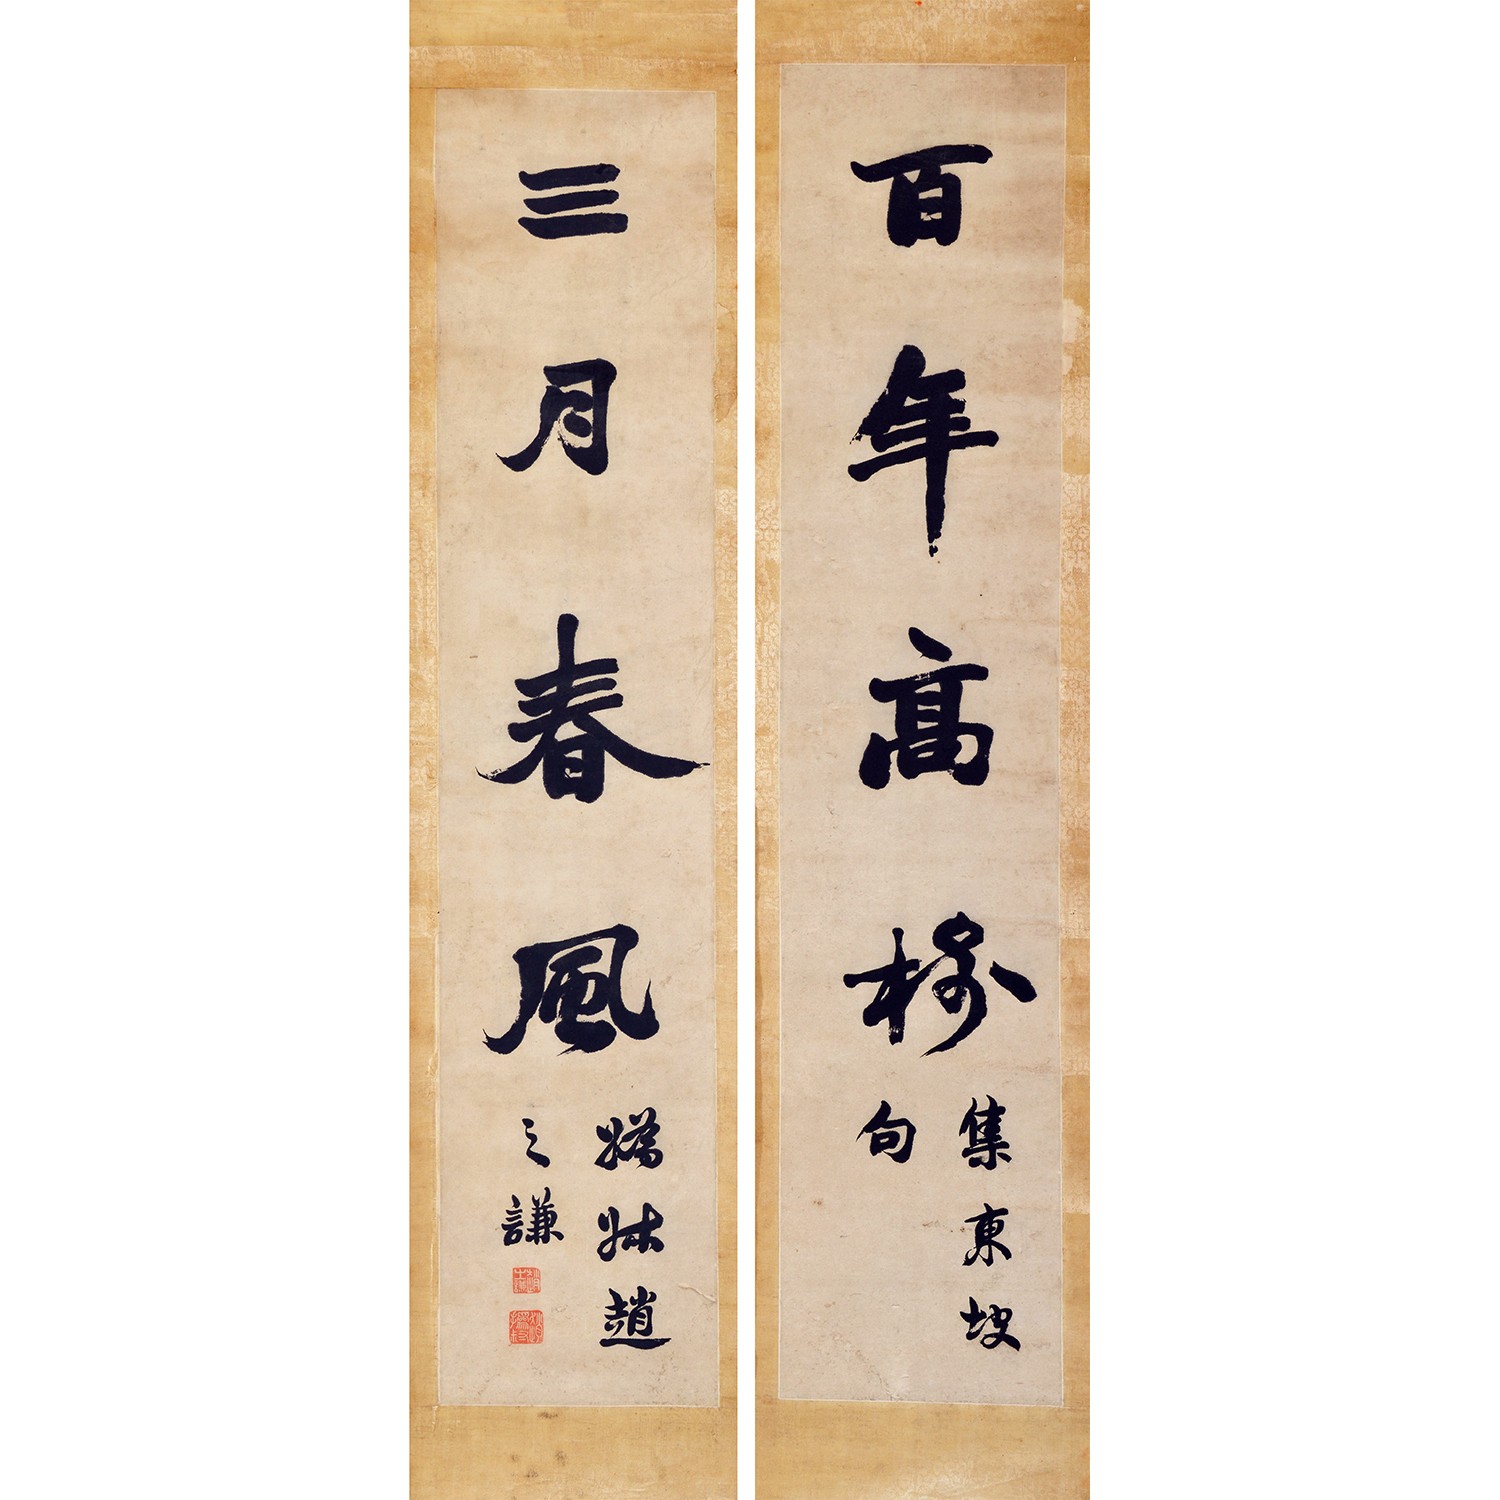 百年高
集東坡
句
三月春風
撝叔趙
之謙